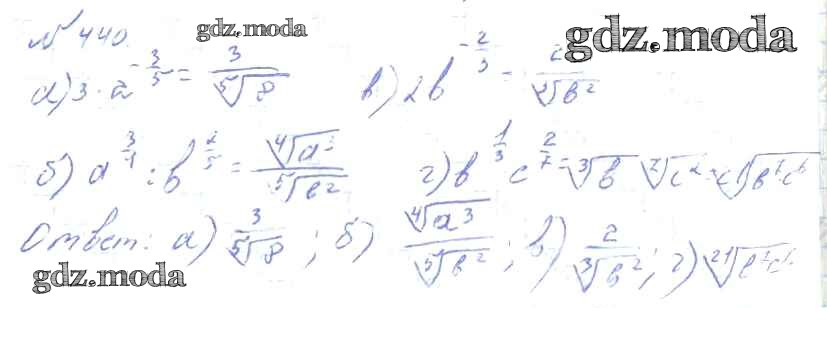 № 440.
gdz.moda
gdz.moda
а) 3·2^{-3/5} = 3/⁵√8 в) 2b^{-2/3} = 2/³√b²
б) a^{3/4} : b^{2/5} = ⁴√a³/⁵√b² г) b^{1/3} c^{2/7} = ³√b ⁷√c² = ²¹√b⁷c⁶
Ответ: а) 3/⁵√8 ; б) ⁴√a³/⁵√b² ; в) 2/³√b² ; г) ²¹√b⁷c⁶
gdz.moda